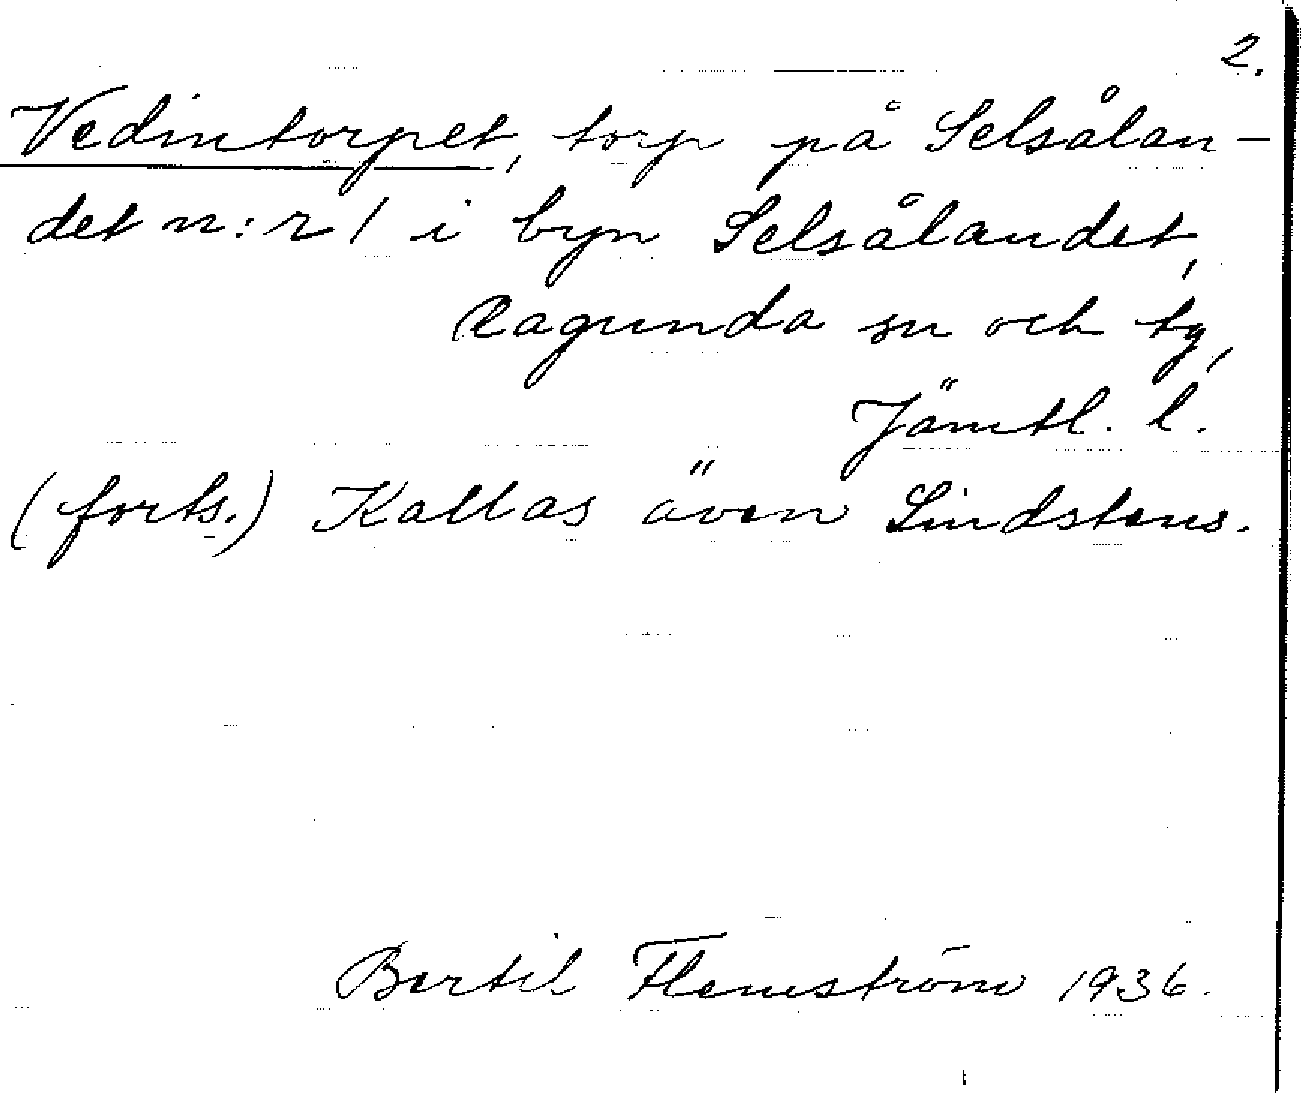 2.
Vedintorpet, torp på Selsålan-
det n:r 1 i byn Selsålandet,
Ragunda sn och tg,
Jämtl. l.
(forts.) Kallas även Lindstens.
Bertil Flemström 1936.